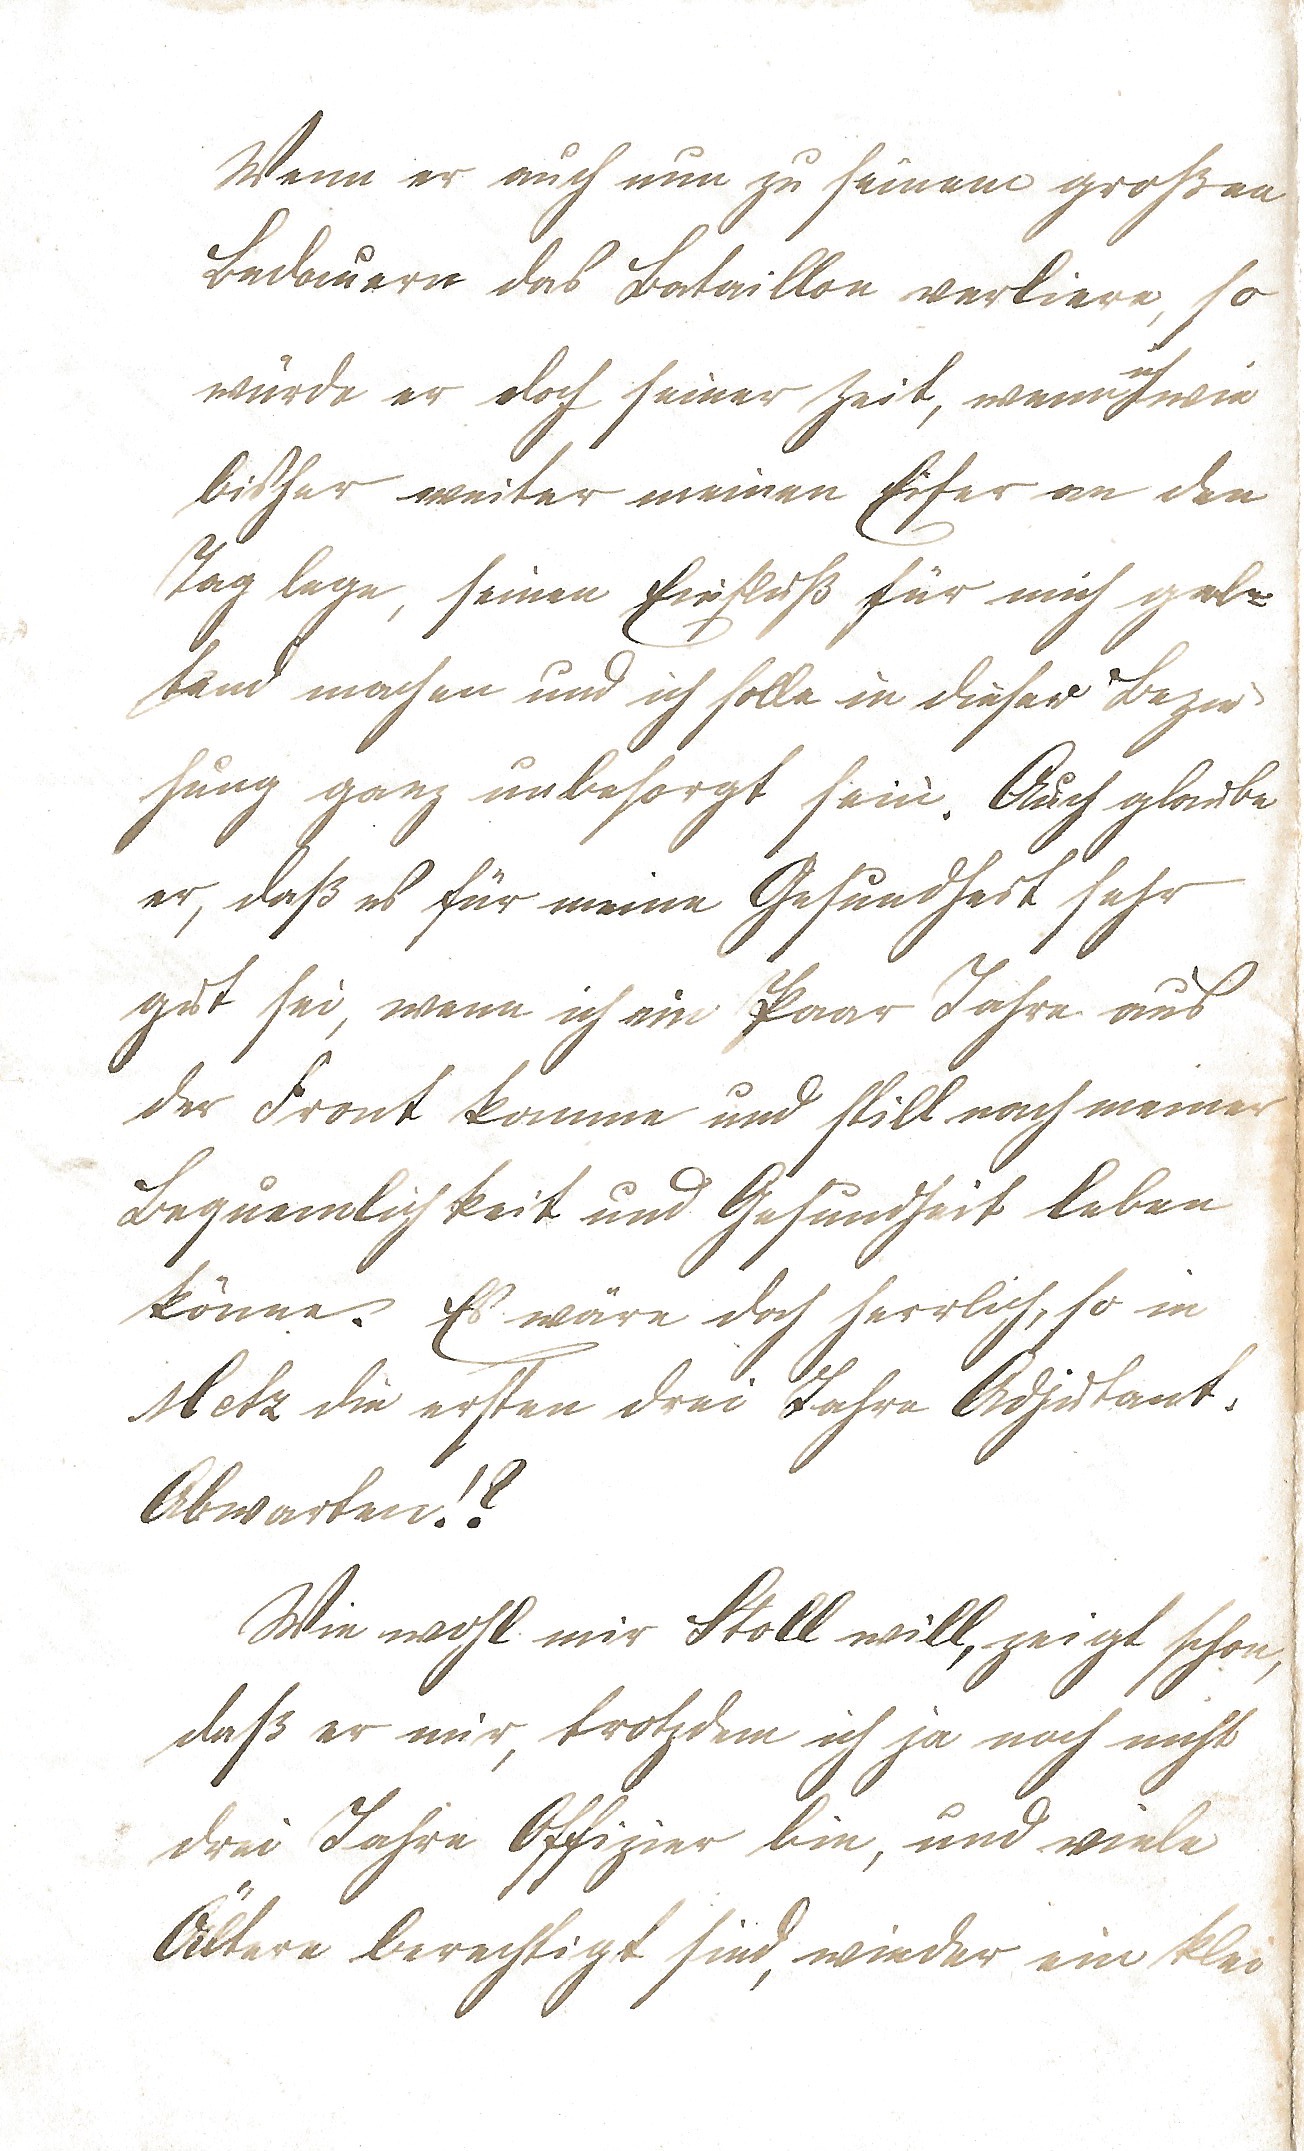 Wenn er auch nun zu seinem großen
Bedauern das Bataillon verliere, so
würde er doch seiner Zeit, wenn ich wie
bisher weiter meinen Eifer an den
Tag lege, seinen Einfluß für mich gel-
tend machen und ich solle in dieser Bezie-
hung ganz unbesorgt sein. Auch glaube
er, daß es für meine Gesundheit sehr
gut sei, wenn ich ein Paar Jahre aus
der Front komme und still nach meiner
Bequemlichkeit und Gesundheit leben
könne. Es wäre doch herrlich, so in
Metz die ersten drei Jahre Adjutant.
Abwarten!?
Wie wohl mir Stoll will, zeigt schon,
daß er mir, trotzdem ich ja noch nicht
drei Jahre Offizier bin, und viele
Ältere berechtigt sind, wieder ein klei